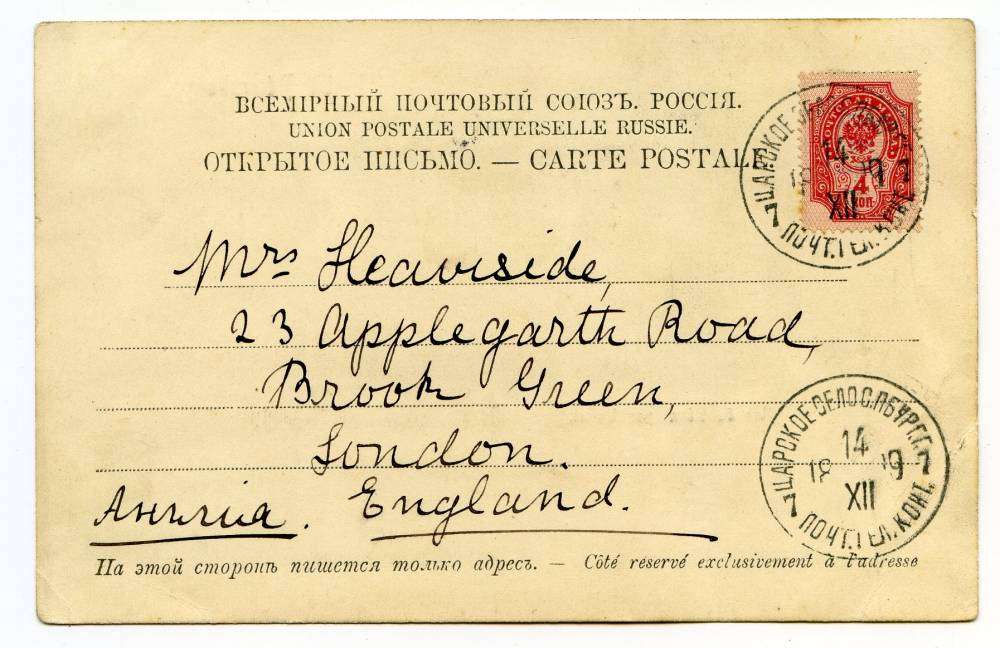 ВСЕМІРНЫЙ ПОЧТОВЫЙ СОЮЗЪ. РОССІЯ.
UNION POSTALE UNIVERSELLE RUSSIE.
ОТКРЫТОЕ ПИСЬМО. — CARTE POSTALE
4
КОП.
ЦАРСКОЕ
14
XII
7 ПОЧТ.ТЕЛ.КОНТ. 7
Mrs Heaviside,
23 Applegarth Road,
Brook Green,
London.
Англия. England.
ЦАРСКОЕ СЕЛО С.ПБУРГ.Г.
14
XII
7 ПОЧТ.ТЕЛ.КОНТ. 7
На этой сторонѣ пишется только адресъ. — Côté reservé exclusivement à l'adresse